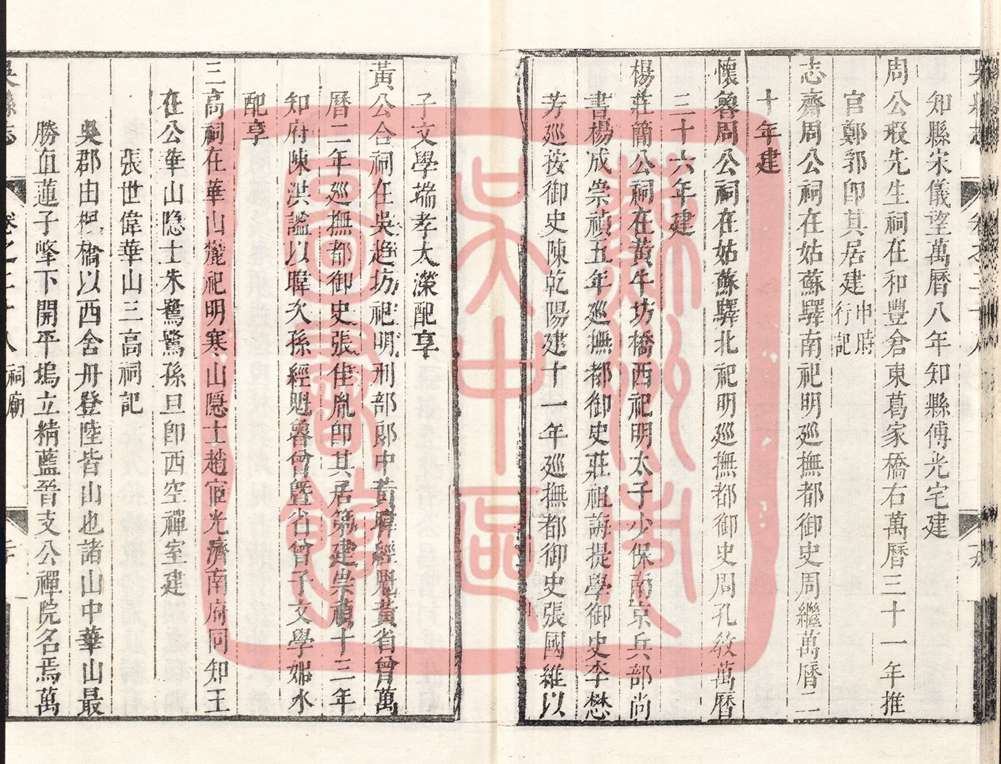 知縣宋儀望萬曆八年知縣傅光宅建
周公瑕先生祠在和豐倉東葛家橋右萬曆三十一年推
官鄭郛卽其居建申時行記
志齋周公祠在姑蘇驛南祀明廵撫都御史周繼萬曆二
十年建
懷魯周公祠在姑蘇驛北祀明廵撫都御史周孔敎萬曆
三十六年建
楊莊簡公祠在黃牛坊橋西祀明太子少保南京兵部尚
書楊成崇禎五年廵撫都御史莊祖誨提學御史李懋
芳廵按御史陳乾陽建十一年廵撫都御史張國維以
子文學端孝大濚配享
黃公合祠在吳趨坊祀明刑部郞中黃暐經魁黃省曾萬
曆二年廵撫都御史張佳胤卽其居第建崇禎十三年
知府陳洪謐以暐玄孫經魁魯曾曁省曾子文學姬水
配享
三高祠在華山麓祀明寒山隱士趙宧光濟南府同知王
在公華山隐士朱鷺鷺孫旦卽西空禪室建
張世偉華山三高祠記
吳郡由楓橋以西舍舟登陸皆山也諸山中華山最
勝血蓮子峰下開平塢立精藍晉支公禪院名焉萬
吳縣志
卷之二十八 祠廟
蘇州市吳中區圖書館